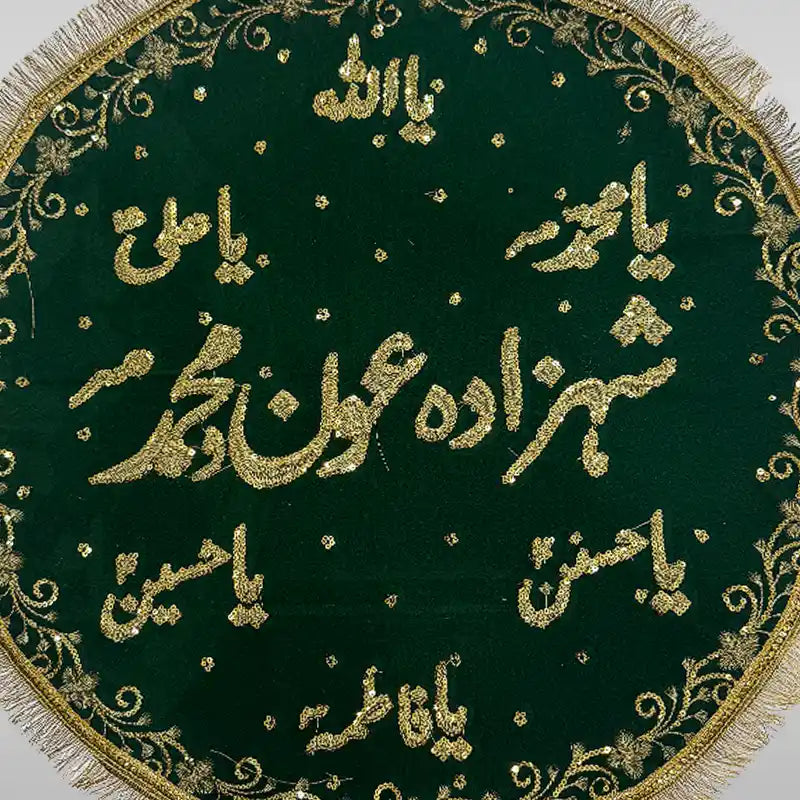 یا اللہ
یا محمدؐ
یا علیؑ
شہزادہ عون و محمدؑ
یا حسنؑ
یا حسینؑ
یا فاطمہؑ